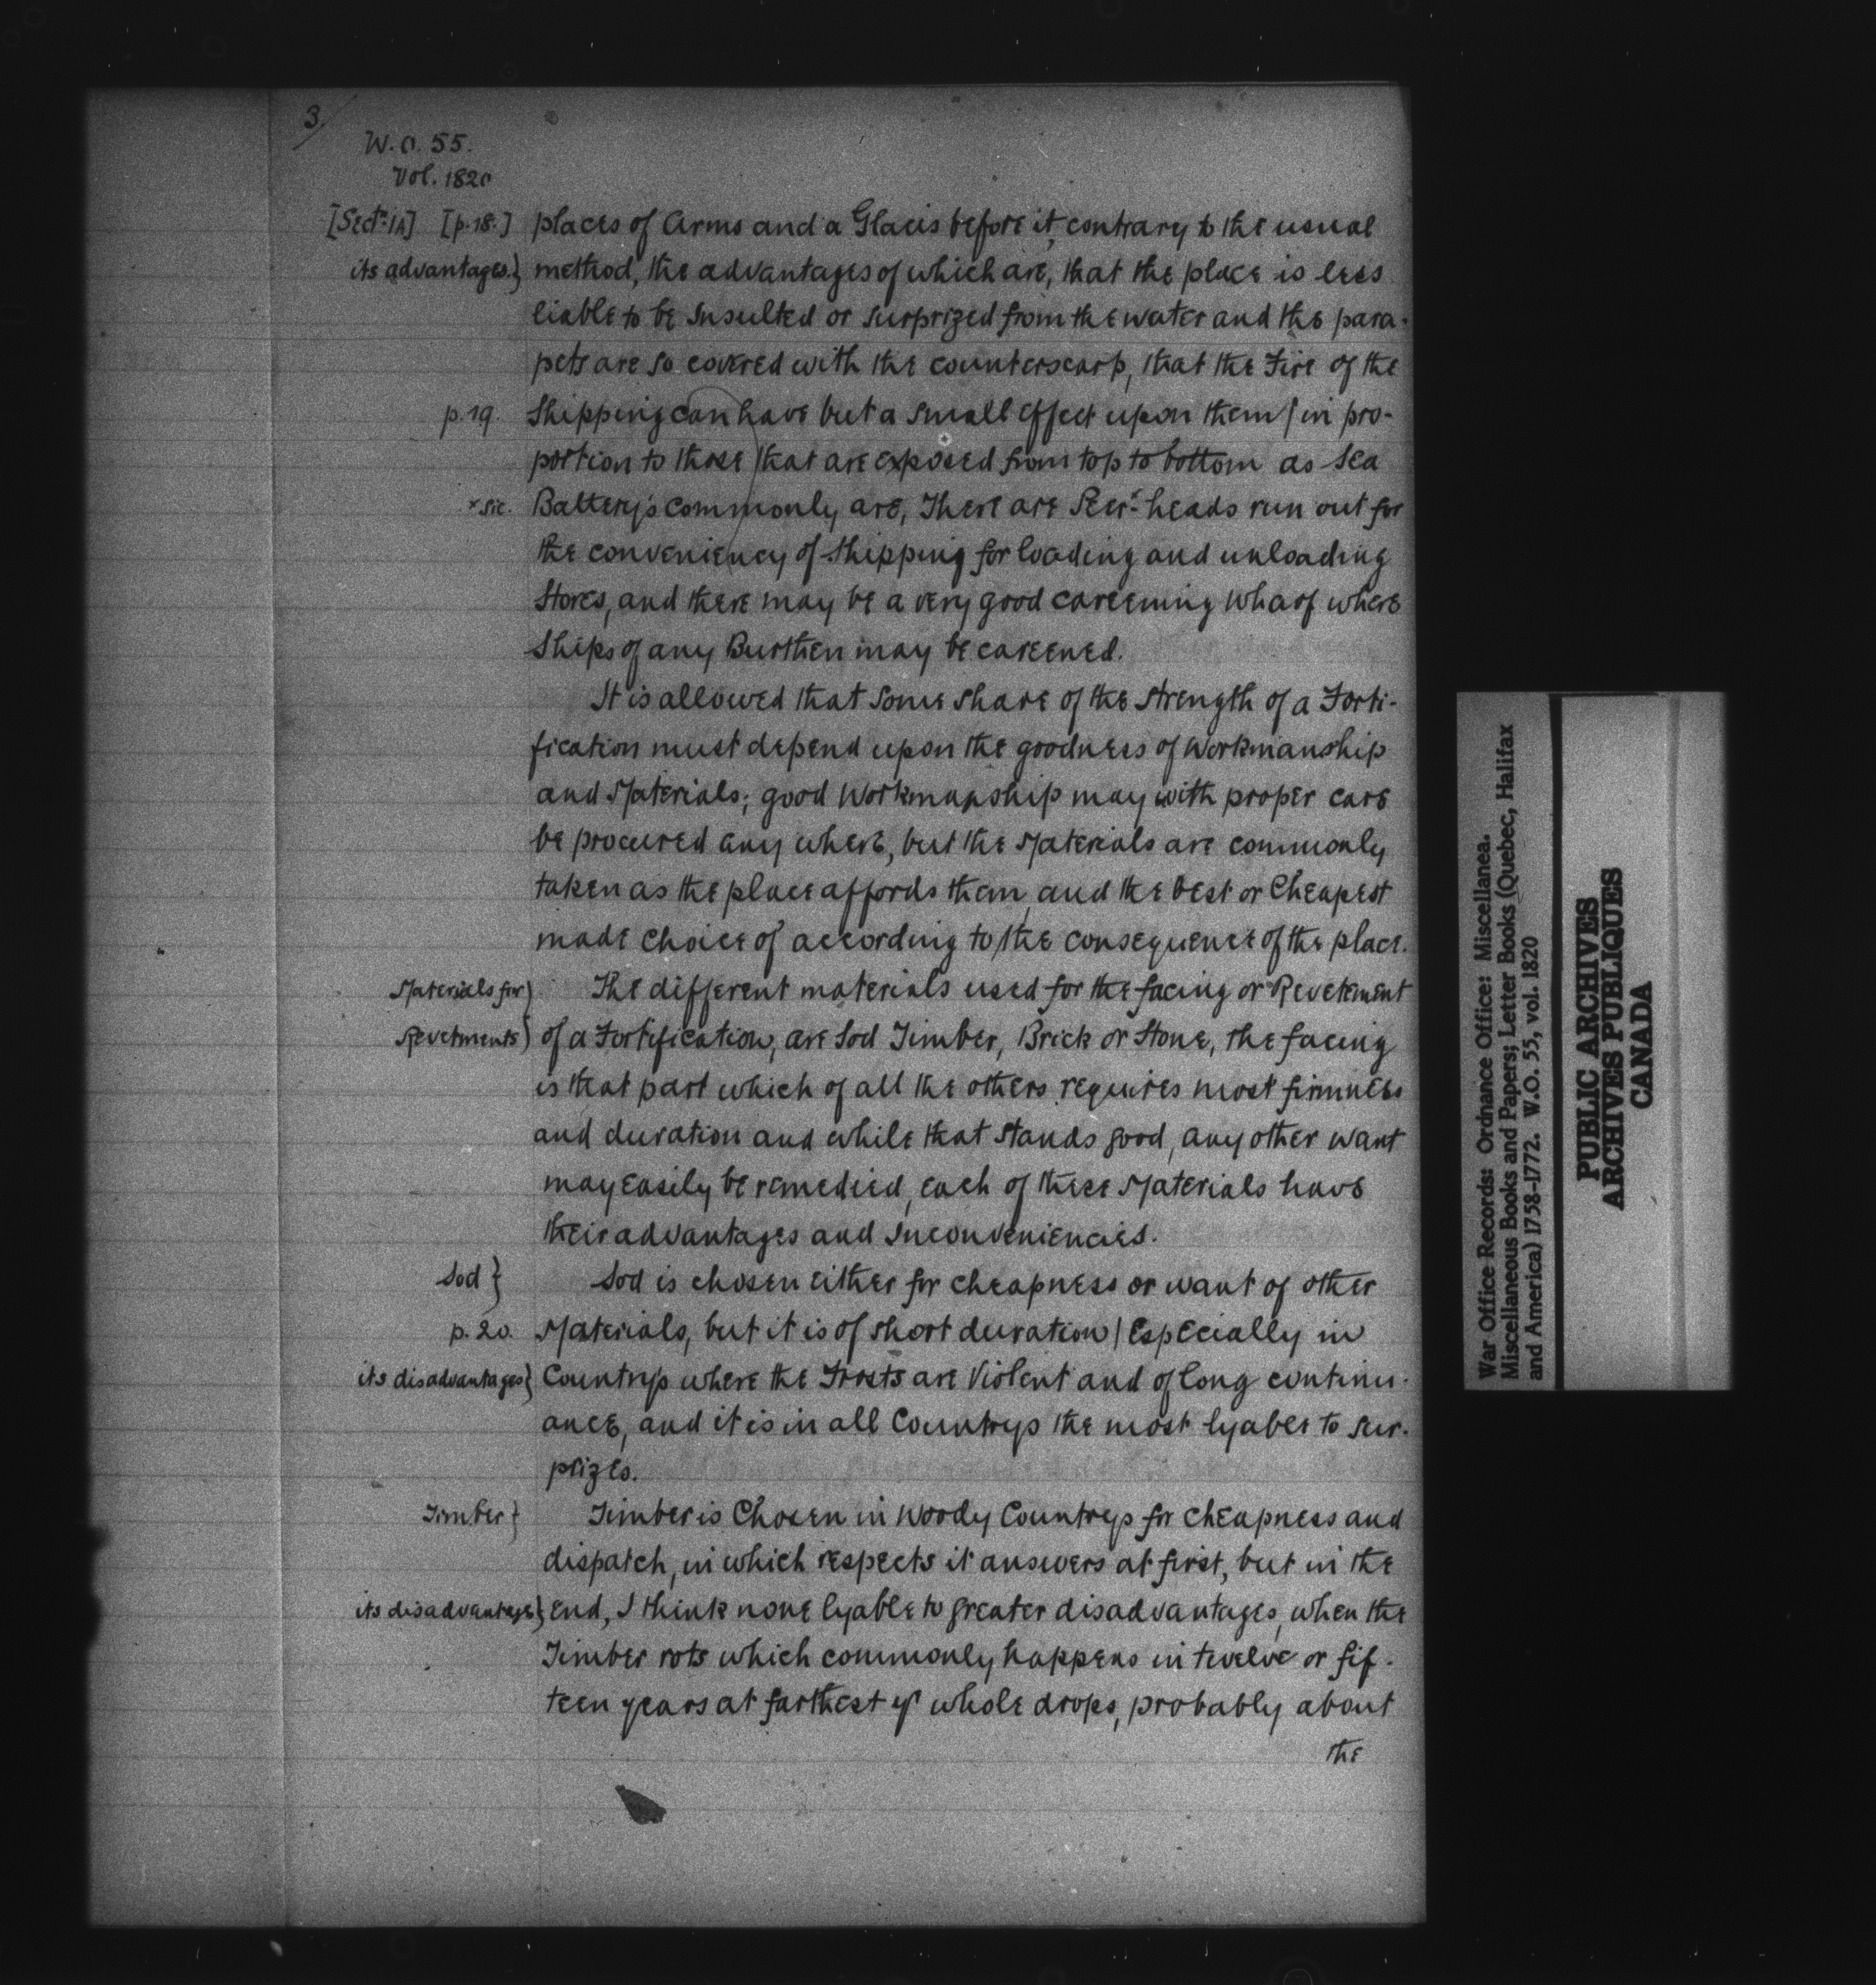 3/
W.O. 55.
Vol. 1820
[Sectn IA] [p.18.] places of Arms and a Glacis before it, contrary to the usual
its advantages.} method, the advantages of which are, that the place is less
liable to be Insulted or surprized from the water and the para-
pets are so covered with the counterscarp, that the Fire of the
p.19. Shipping can have but a small effect upon them / in pro-
portion to those that are exposed from top to bottom as Sea
x sic. Battery's commonly are, There are Peer x heads run out for
the conveniency of Shipping for loading and unloading
Stores, and there may be a very good careening Wharf where
Ships of any Burthen may be careened.
It is allowed that some share of the strength of a Forti-
fication must depend upon the goodness of Workmanship
and Materials; good Workmanship may with proper care
be procured any where, but the Materials are commonly
taken as the place affords them, and the best or Cheapest
made Choice of according to the consequence of the place.
Materials for} The different materials used for the facing or Revetement
Revetments} of a Fortification, are Sod Timber, Brick or Stone, the facing
is that part which of all the others requires most firmness
and duration and while that Stands good, any other want
may easily be remedied, each of these Materials have
their advantages and Inconveniencies.
Sod} Sod is chosen either for cheapness or want of other
p. 20. Materials, but it is of short duration / Especially in
its disadvantages} Countrys where the Frosts are Violent and of long continu-
ance, and it is in all Countrys the most lyable to sur-
prizes.
Timber} Timber is Chosen in Woody Countrys for cheapness and
dispatch, in which respects it answers at first, but in the
its disadvantages} End, I think none lyable to greater disadvantages, when the
Timber rots which commonly happens in twelve or fif-
teen years at farthest ye whole drops, probably about
the
War Office Records: Ordnance Office: Miscellanea.
Miscellaneous Books and Papers; Letter Books (Quebec, Halifax
and America) 1758-1772. W.O. 55, vol. 1820
PUBLIC ARCHIVES
ARCHIVES PUBLIQUES
CANADA